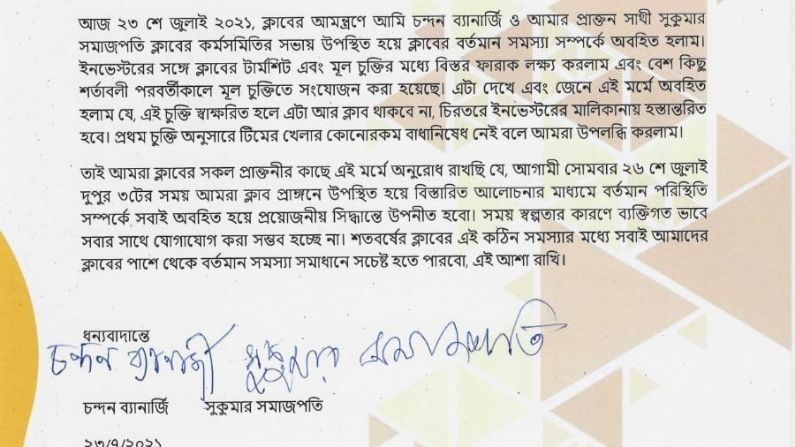 আজ ২৩ শে জুলাই ২০২১, ক্লাবের আমন্ত্রণে আমি চন্দন ব্যানার্জি ও আমার প্রাক্তন সাথী সুকুমার
সমাজপতি ক্লাবের কর্মসমিতির সভায় উপস্থিত হয়ে ক্লাবের বর্তমান সমস্যা সম্পর্কে অবহিত হলাম।
ইনভেস্টরের সঙ্গে ক্লাবের টার্মশিট এবং মূল চুক্তির মধ্যে বিস্তর ফারাক লক্ষ্য করলাম এবং বেশ কিছু
শর্তাবলী পরবর্তীকালে মূল চুক্তিতে সংযোজন করা হয়েছে। এটা দেখে এবং জেনে এই মর্মে অবহিত
হলাম যে, এই চুক্তি স্বাক্ষরিত হলে এটা আর ক্লাব থাকবে না, চিরতরে ইনভেস্টরের মালিকানায় হস্তান্তরিত
হবে। প্রথম চুক্তি অনুসারে টিমের খেলার কোনোরকম বাধানিষেধ নেই বলে আমরা উপলব্ধি করলাম।
তাই আমরা ক্লাবের সকল প্রাক্তনীর কাছে এই মর্মে অনুরোধ রাখছি যে, আগামী সোমবার ২৬ শে জুলাই
দুপুর ৩টের সময় আমরা ক্লাব প্রাঙ্গনে উপস্থিত হয়ে বিস্তারিত আলোচনার মাধ্যমে বর্তমান পরিস্থিতি
সম্পর্কে সবাই অবহিত হয়ে প্রয়োজনীয় সিদ্ধান্তে উপনীত হবো। সময় স্বল্পতার কারণে ব্যক্তিগত ভাবে
সবার সাথে যোগাযোগ করা সম্ভব হচ্ছে না। শতবর্ষের ক্লাবের এই কঠিন সমস্যার মধ্যে সবাই আমাদের
ক্লাবের পাশে থেকে বর্তমান সমস্যা সমাধানে সচেষ্ট হতে পারবো, এই আশা রাখি।
ধন্যবাদান্তে
চন্দন ব্যানার্জী সুকুমার সমাজপতি
চন্দন ব্যানার্জি সুকুমার সমাজপতি
২৩/৭/২০২১